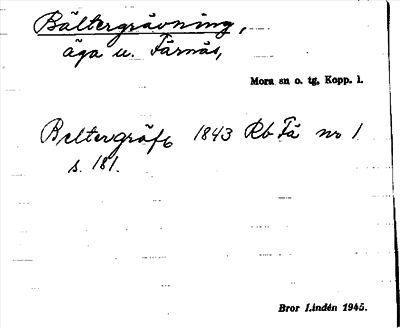 Bältergrävning,
äga u. Färnäs,
Mora sn o. tg, Kopp. l.
Beltergräfs 1843 Rb Fä nr 1
s. 181.
Bror Lindén 1945.